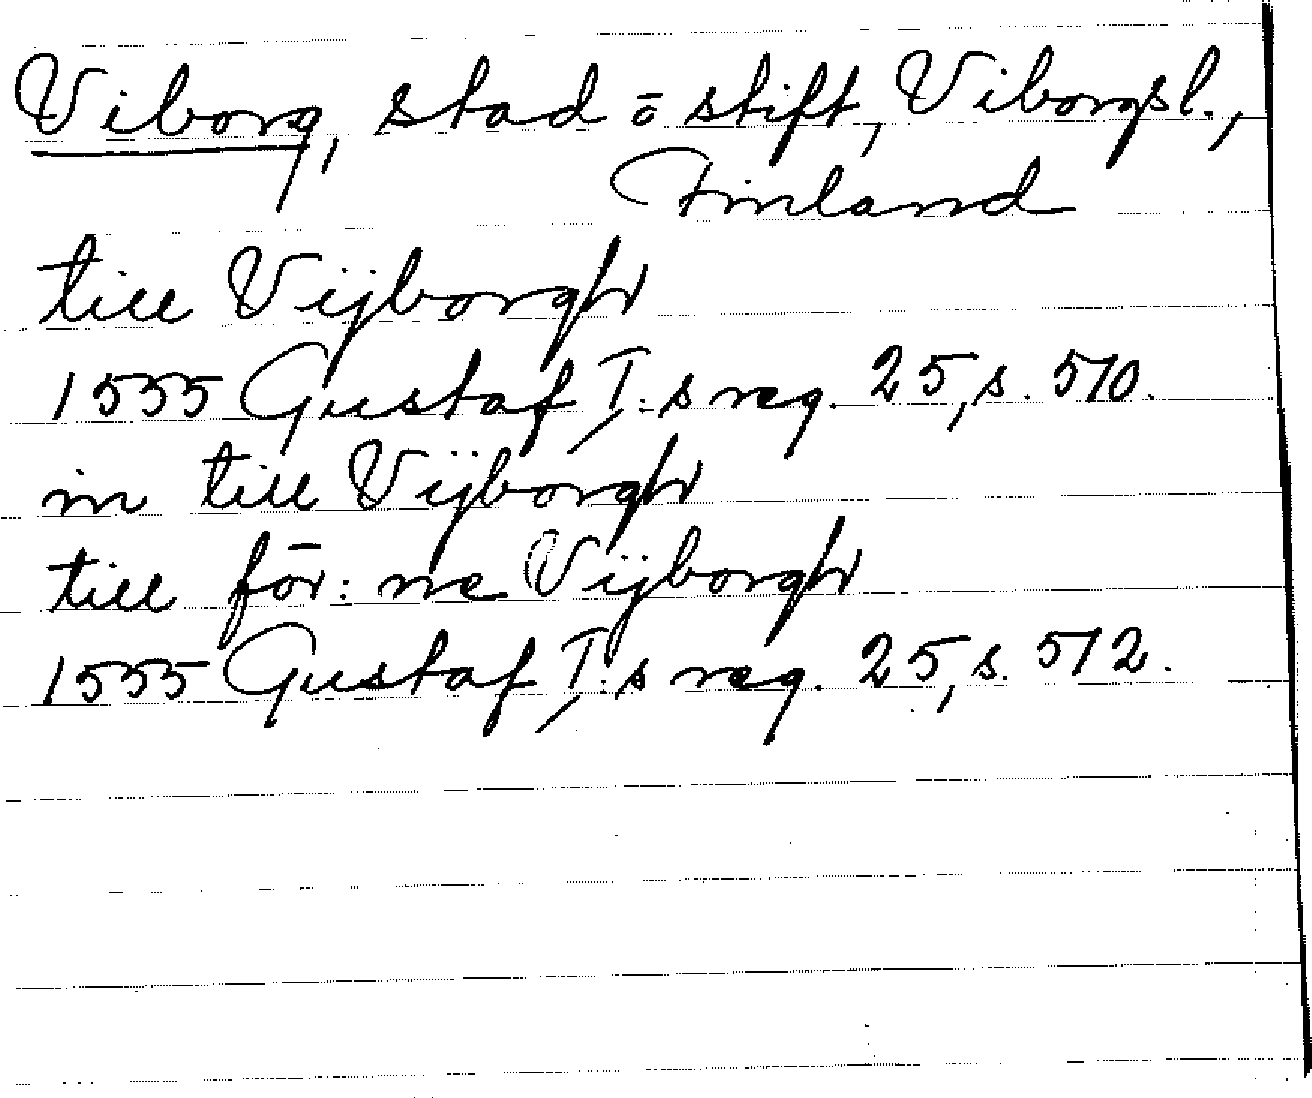 Viborg, stad ō stift, Viborgsl.,
Finland
till Vijborgh
1555 Gustaf I:s reg. 25, s. 570.
in till Vijborgh
till för:ne Vijborgh
1555 Gustaf I:s reg. 25, s. 572.